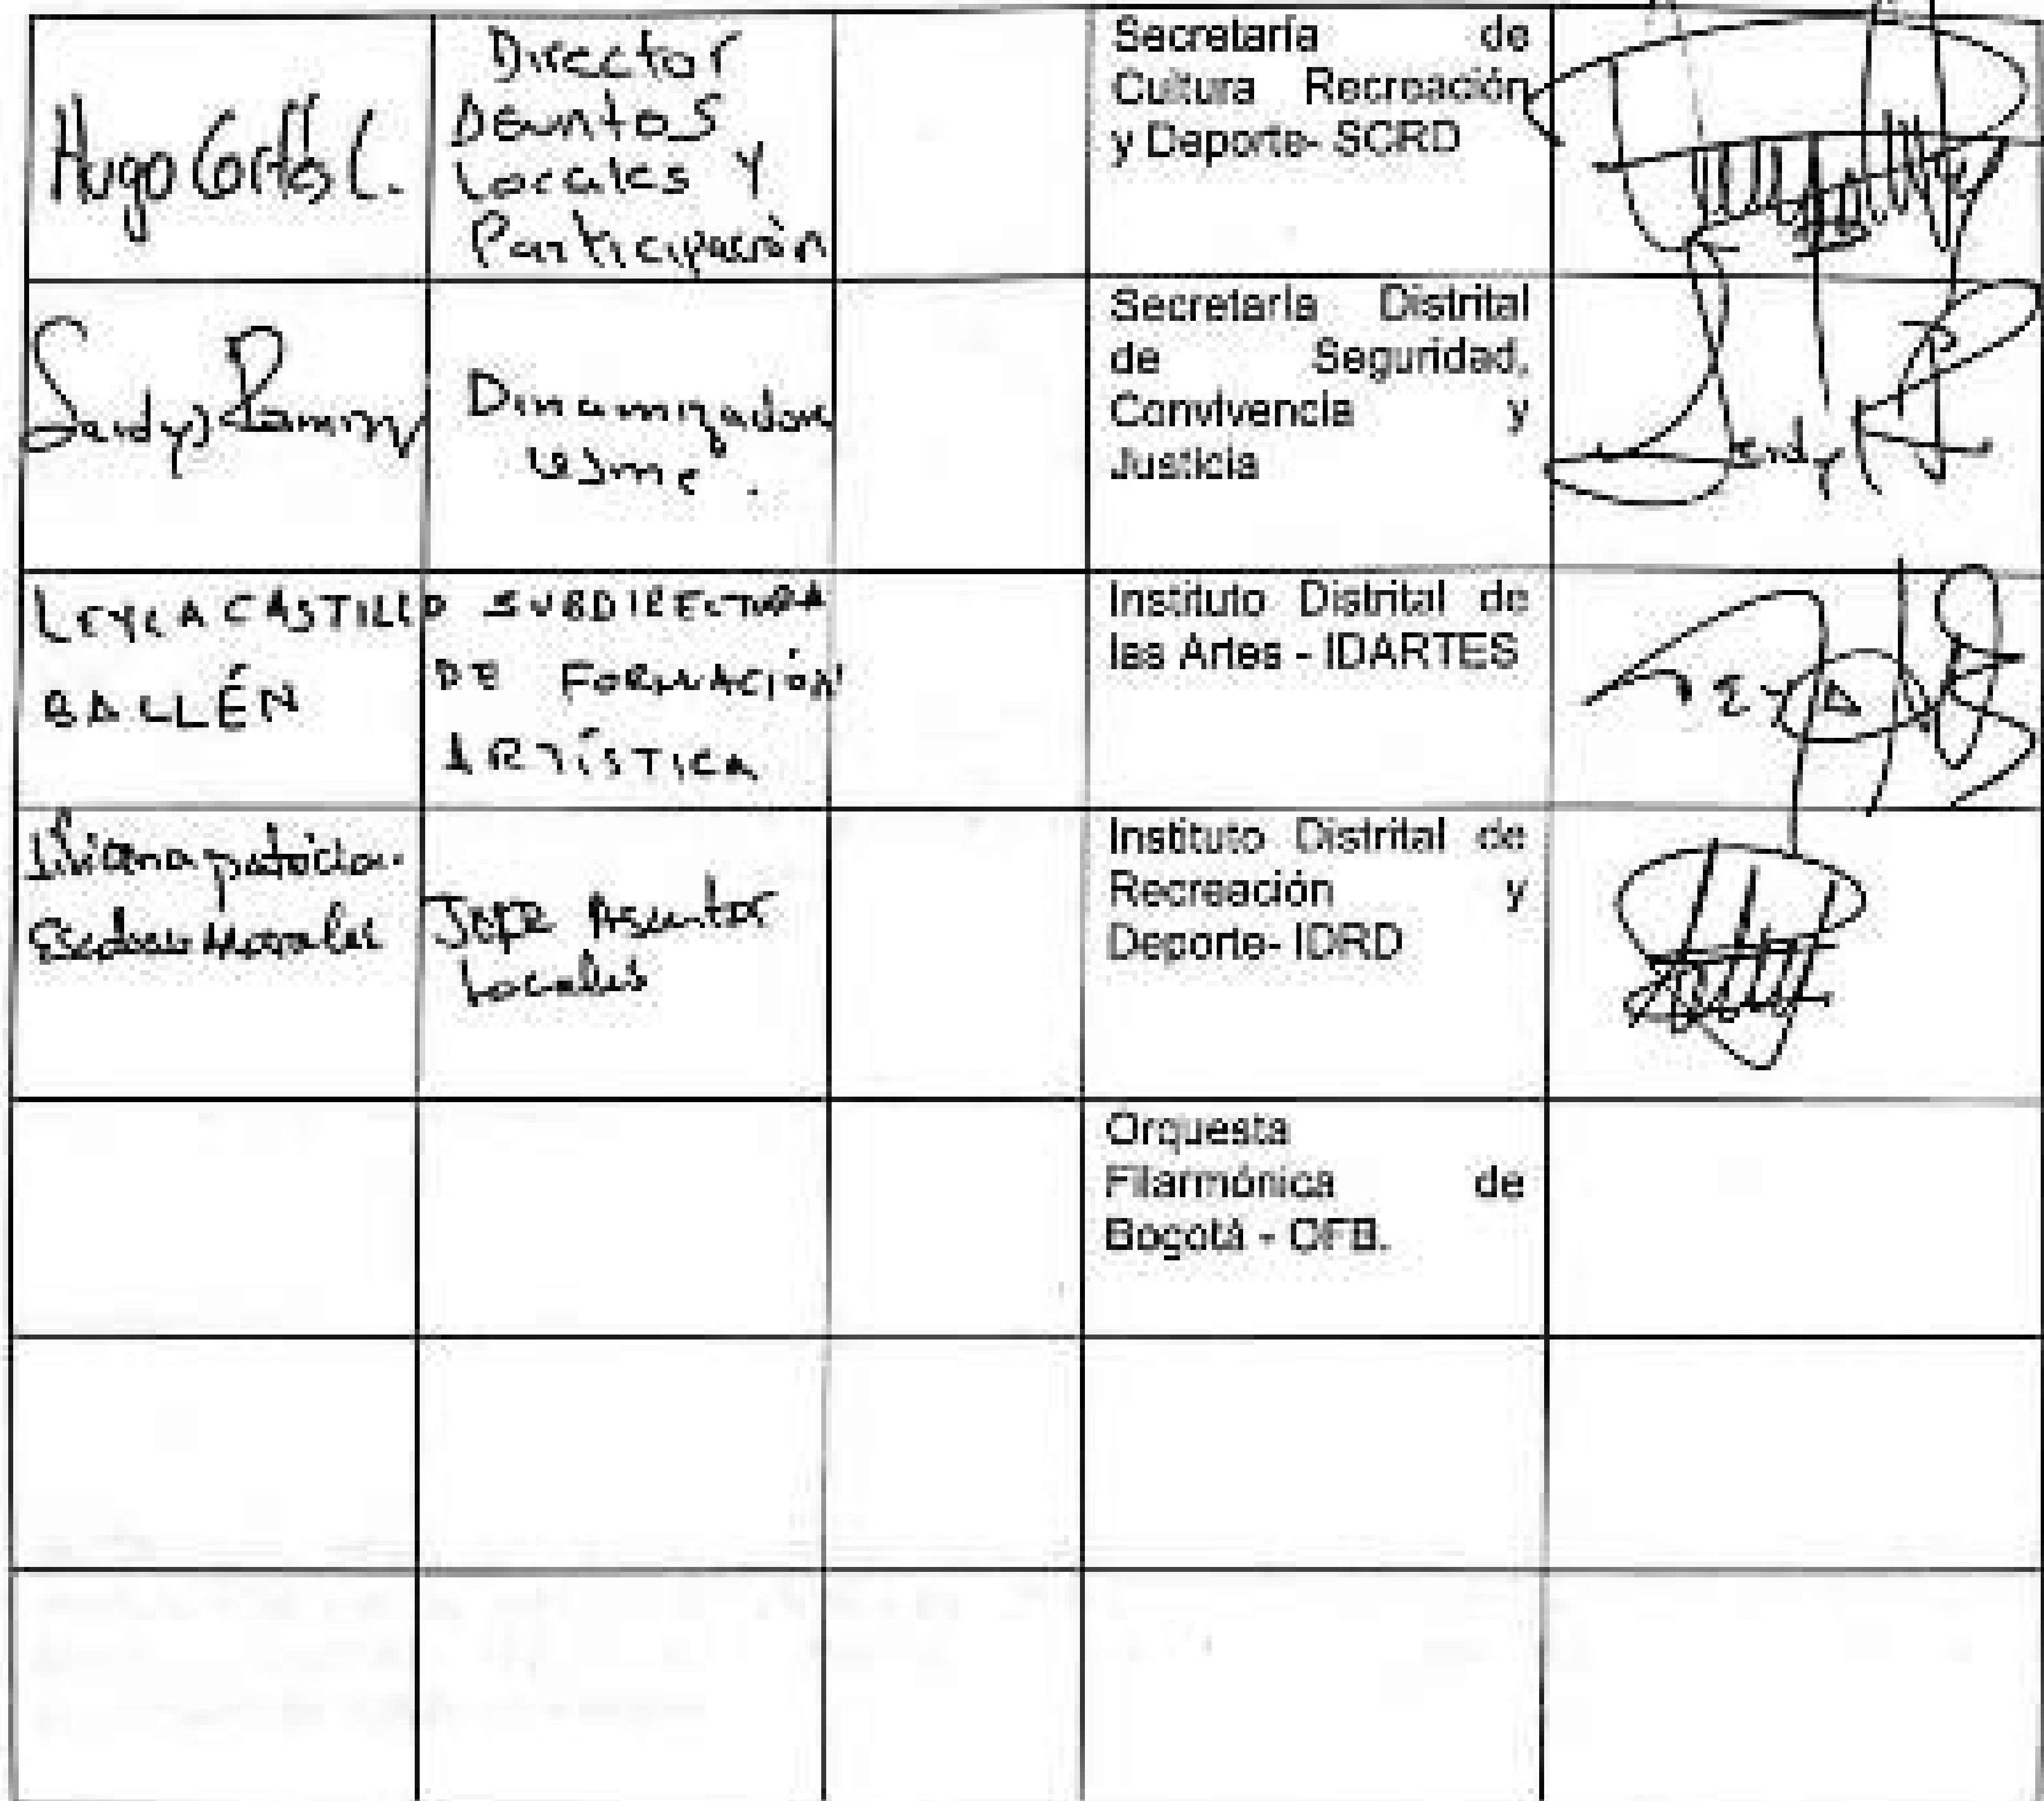 Hugo Cortés C.
Director
Asuntos
Locales y
Participación
Secretaría de
Cultura Recreación
y Deporte- SCRD
Dinamizadora
Usme.
Secretaría Distrital
de Seguridad,
Convivencia y
Justicia
LEYLA CASTILLO
BALLÉN
SUBDIRECTORA
DE FORMACIÓN
ARTÍSTICA
Instituto Distrital de
las Artes - IDARTES
patricia
Morales
Jefe Asuntos
Locales
Instituto Distrital de
Recreación y
Deporte- IDRD
Orquesta
Filarmónica de
Bogotá - OFB.